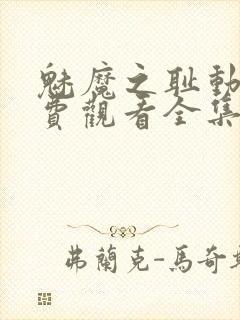 魅魔之耻動
費觀看全集
弗蘭克-馬奇